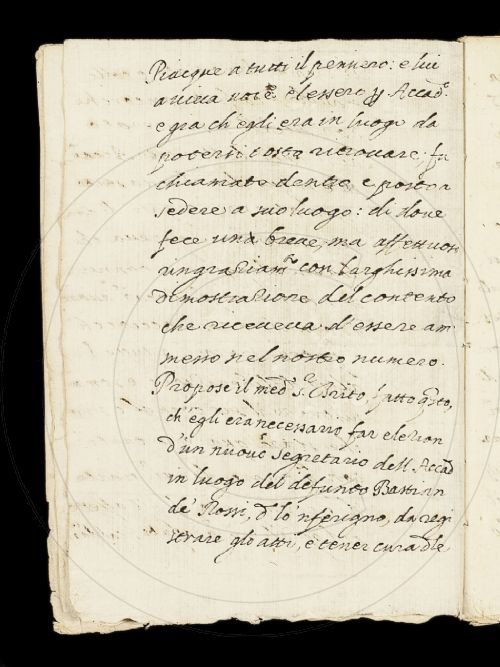 Piacque a tutti il pensiero: e lui
a viva voce elessero p Accad.
e gia ch'egli era in luogo da
potersi tosto ritrovare, fu
chiamato dentro e posto a
sedere a suo luogo: di dove
fece una breve, ma affettuosa
ringraziam.to con larghissima
dimostrazione del contento
che riceveva d'essere am-
messo nel nostro numero.
Propose il med.o S.r Brito, fatto q.sto,
ch'egli era necessario far elezion
d'un nuovo segretario dell'Accad
in luogo del defunto Bastian
de' Rossi, d.o lo 'nferigno, da regi
strare gli atti, e tener cura d.le